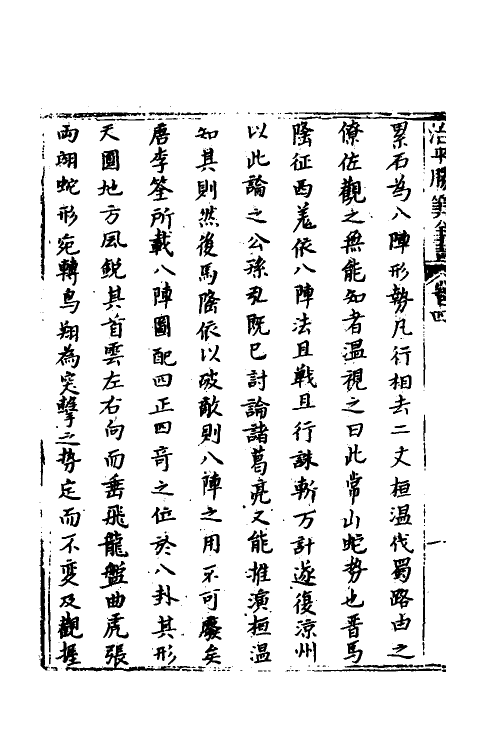 累石為八陣形勢凡行相去二丈桓温伐蜀路由之
僚佐觀之無能知者温視之曰此常山蛇勢也晋馬
隆征西羗依八陣法且戰且行誅斬万計遂復涼州
以此論之公孫既已討論諸葛亮又能推演桓温
知其則然後馬隆依以破敵則八陣之用不可廢矣
唐李筌所載八陣圖配四正四奇之位於八卦其形
天圓地方風銳其首雲左右向而垂飛龍盤曲虎張
両翊蛇形宛轉鳥翔為突擊之势定而不變及觀握